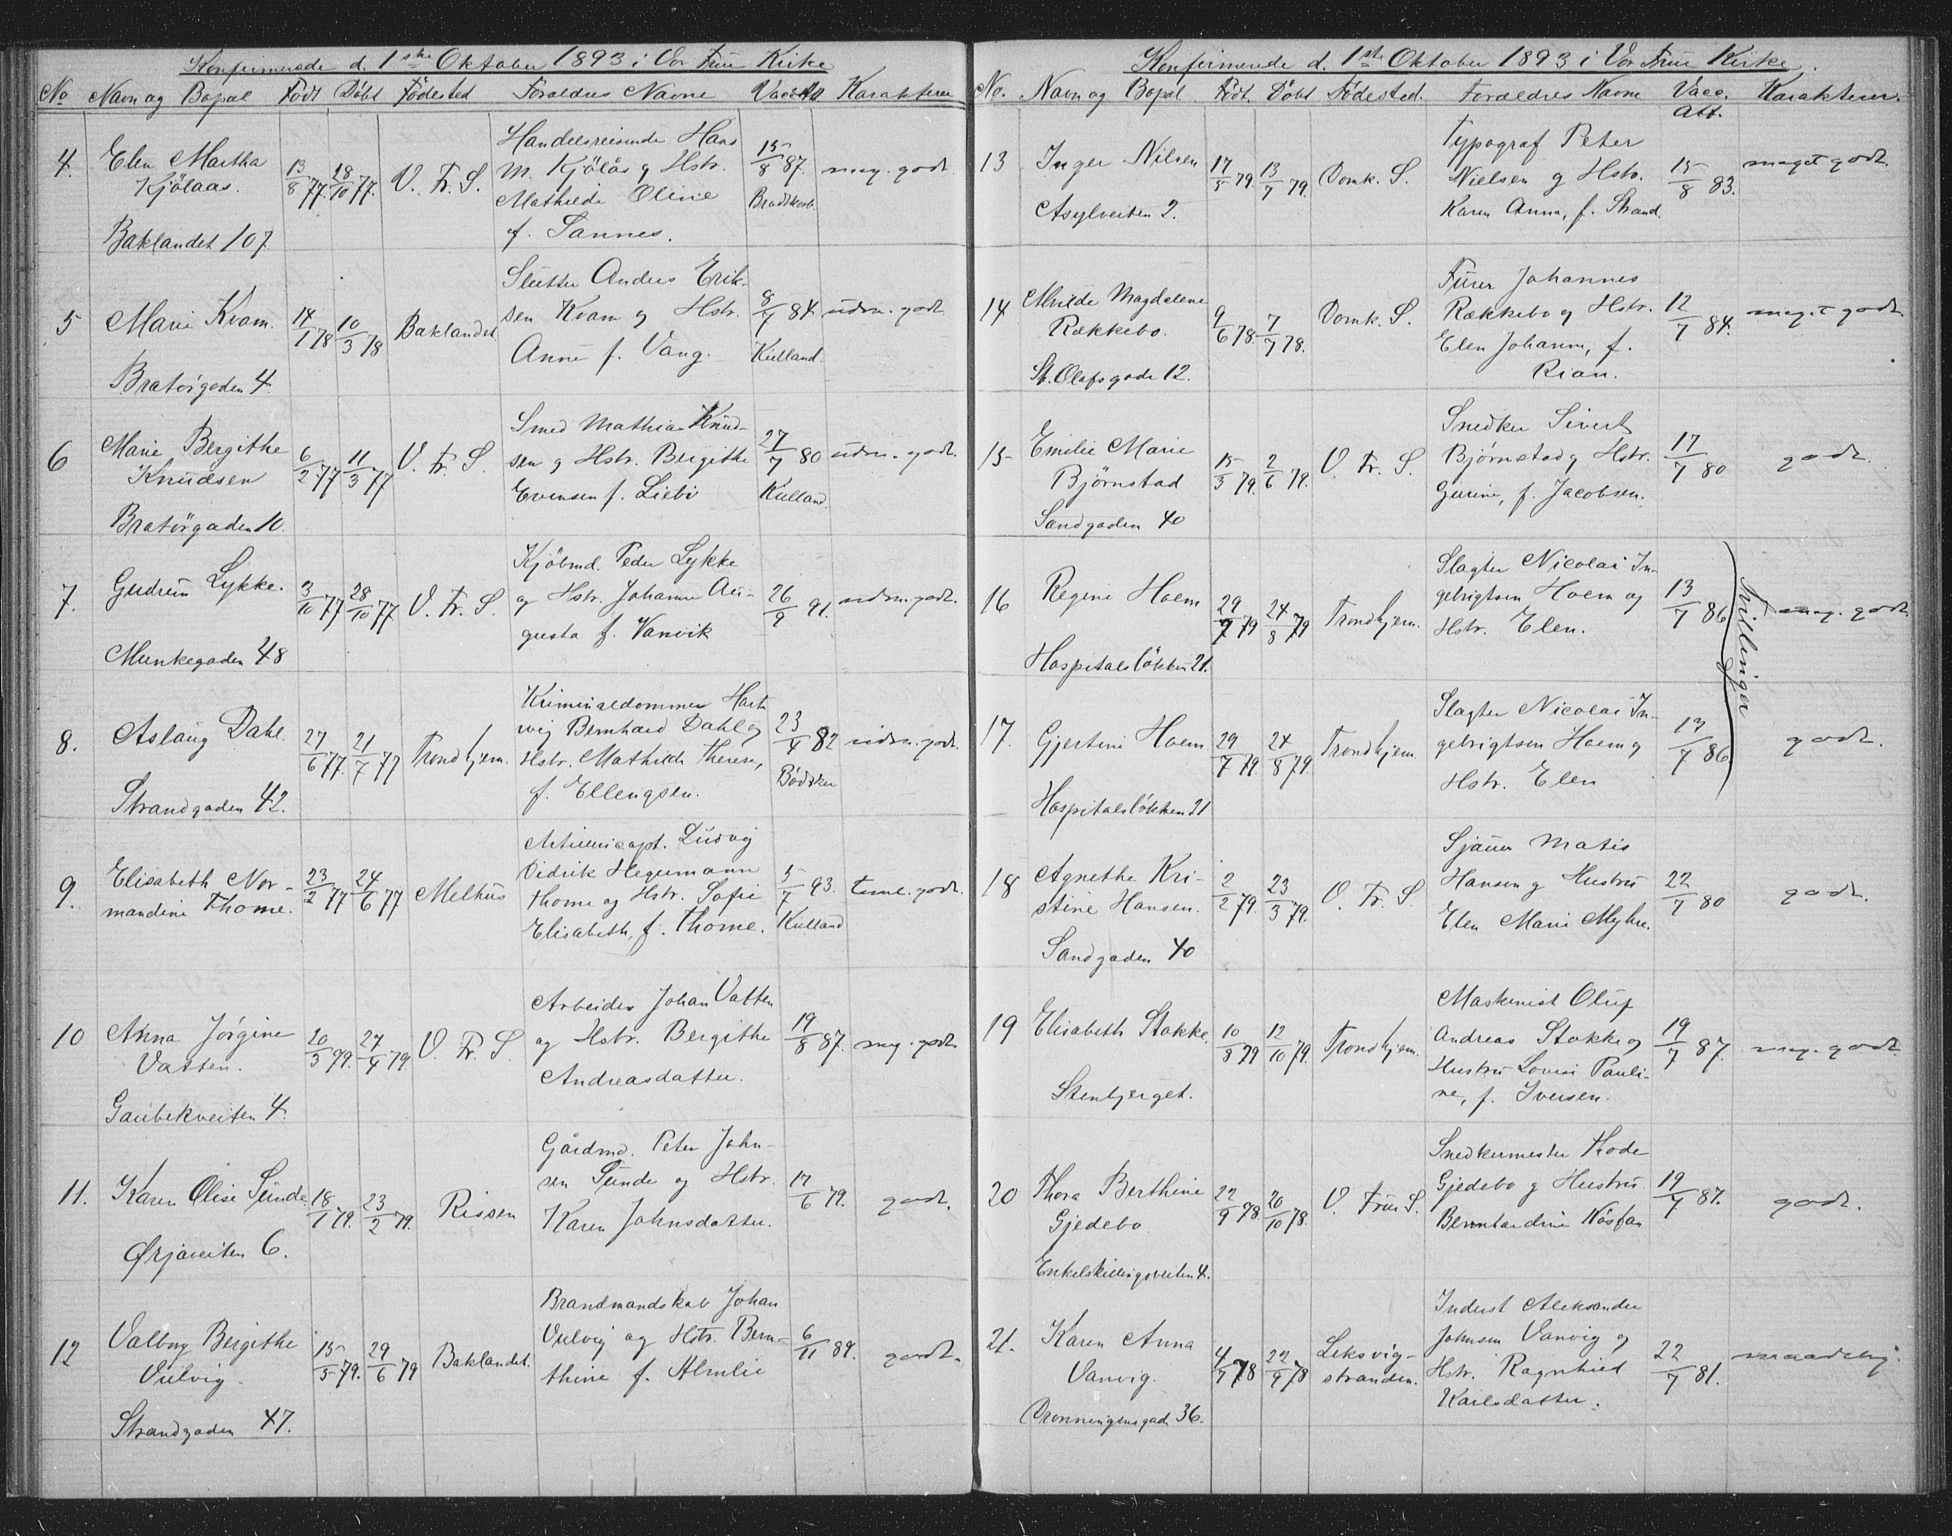 Konfirmerede d. 1ste Oktober 1893 i Vor Frue Kirke
No Navn og Bopæl Født Døbt Fødested Forældres Navne Vacc. Att. Karakter
4. Elen Martha Kjölaas. 13/8 77. 28/10 77. V. Fr. S. Handelsreisende Hans M. Kjölås og Hstr. Mathilde Oline f. Sannes. 15/8 87. meg. godt.
Baklandet 107
5 Marie Kvam. 14/1 78 10/3 78 Baklandet Slutter Anders Eriksen Kvam og Hstr. Anne f. Vang. 8/7 84. Kulland. udm. godt.
Bratörgaden 4.
6 Marie Bergithe Knudsen 6/2 77 11/3 77 V. Fr. S. Smed Mathias Knudsen og Hstr. Bergithe Evensen f. Liebi 27/7 80 Kulland. udm. godt.
Bratörgaden 10.
7. Gudrun Lykke. 3/10 77 28/10 77 V. Fr. S. Kjöbmd. Peder Lykke og Hstr. Johanne Augusta f. Vanvik 26/9 91. udm. godt.
Munkegaden 48
8. Aslaug Dahl 27/6 77. 21/7 77 Trondhjem. Kriminaldommer Hartvig Bernhard Dahl og Hstr. Mathilde Therese, f. Ellengsen. 23/4 82 udm. godt.
Strandgaden 42.
9. Elisabeth Normandine Thome. 23/2 77 24/6 77 Melhus Ludvig Didrik Hegermann Thome og Hstr. Sofie Elisabeth, f. Thome. 5/7 93. Kulland godt.
10 Anna Jörgine Vatten. 20/3 79. 27/4 79. V. Fr. S. Arbeider Johan Vatten og Hstr. Bergithe Andreasdatter. 19/8 87. meg. godt.
Gaubekveiten 4.
11. Karen Olise Sunde 18/1 79. 23/2 79. Rissen Gårdmd. Peter Johnsen Sunde og Hstr. Karen Johnsdatter. 17/6 79. godt.
Ørjaveiten 6.
12 Valborg Bergithe Vulvig. 15/5 79. 29/6 79 Baklandet. Brandmandskab Johan Vulvig og Hstr. Bernthine f. Almlie 6/11 89. godt.
Strandgaden 47.
Konfirmerede d. 1ste Oktober 1893 i Vor Frue Kirke.
No. Navn og Bopæl Født. Døbt Fødested. Forældres Navne Vacc. Att. Karakterer.
13 Inger Nilsen 17/5 79. 13/7 79. Domk. S. Typograf Peter Nielsen og Hstr. Karen Anna, f. Strand. 15/8 83. meget godt.
Asylveiten 2.
14 Magdalene Rækkebo. 9/6 78. 7/7 78. Domk. S. Furer Johannes Rækkebo og Hstr. Elen Johanne, f. Rian. 12/7 84. meget godt.
St. Olafsgade 12.
15 Emilie Marie Björnstad 15/3 79. 2/6 79. V. Fr. S. Snedker Sivert Björnstad og Hstr. Gurine, f. Jacobsen. 17/7 80 godt.
Sandgaden 40
16 Regine Hoem 29/7 79 24/8 79 Trondhjem. Slagter Nicolai Ingebrigtsen Hoem og Hstr. Elen. 13/7 86 meg. godt
Hospitalslökken 21.
Tvillinger
17. Gjertine Hoem 29/7 79. 24/8 79. Trondhjem. Slagter Nicolai Ingebrigtsen Hoem og Hstr. Elen 13/7 86 godt.
Hospitalslökken 21
18 Agnethe Kristine Hansen. 2/2 79. 23/3 79. V. Fr. S. Sjauer Matis Hansen og Hustru Elen Marie Myhre. 22/7 80 godt.
Sandgaden 40
19 Elisabeth Stokke. 10/8 79 12/10 79. Trondhjem. Maskinist Oluf Andreas Stokke og Hustru Lovise Pauline, f. Iversen. 19/7 87. meg. godt
Stenbjerget.
20 Thora Berthine Gjedebo. 22/9 78. 20/10 78. V. Frue S. Snedkermester Thode Gjedebo og Hustru Bernhardine Kösfan 19/7 87. godt.
Enkelskillingsveiten 4.
21. Karen Anna Vanvig. 4/7 78 22/9 78 Leksvigstranden. Inderst Aleksander Johnsen Vanvig og Hstr. Ragnhild Karlsdatter. 22/7 81. maadelig.
Dronningensgade 36.